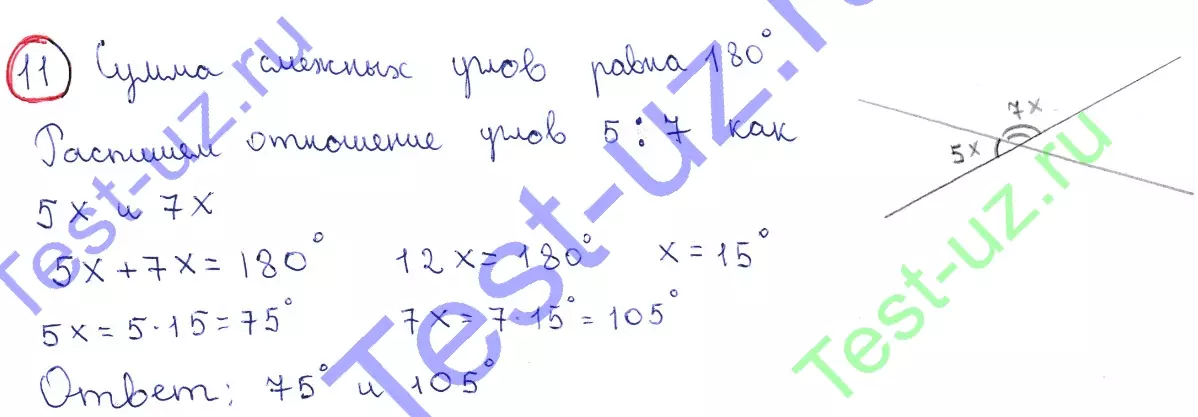 11 Сумма смежных углов равна 180°
Распишем отношение углов 5:7 как
5x и 7x
5x+7x=180° 12x=180° x=15°
5x=5·15=75° 7x=7·15°=105°
Ответ: 75° и 105°
7x
5x
Test-uz.ru
Test-uz.ru
Test-uz.ru